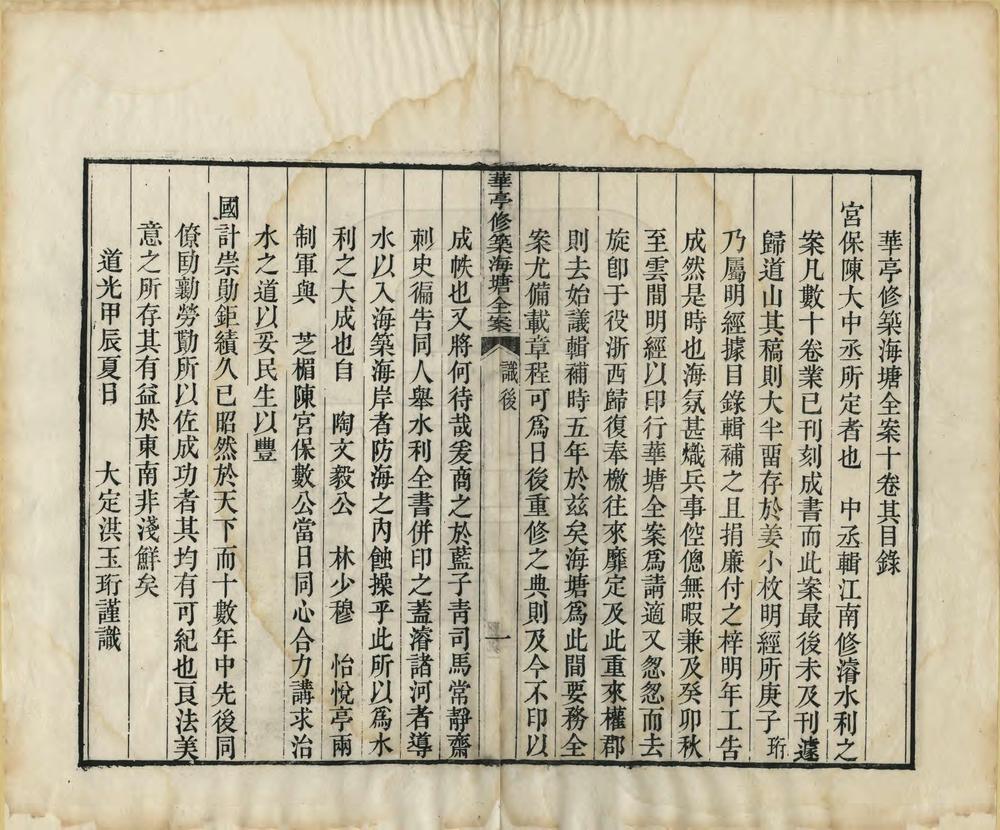 華亭修築海塘全案十卷其目錄
宮保陳大中丞所定者也　中丞輯江南修濬水利之
案凡數十卷業已刊刻成書而此案最後未及刊遽
歸道山其稿則大半畱存於姜小枚明經所庚子珩
乃屬明經據目錄輯補之且捐廉付之梓明年工告
成然是時也海氛甚熾兵事倥傯無暇兼及癸卯秋
至雲間明經以印行華塘全案爲請適又怱怱而去
旋卽于役浙西歸復奉檄往來靡定及此重來權郡
則去始議輯補時五年於茲矣海塘爲此間要務全
案尤備載章程可爲日後重修之典則及今不印以
華亭修築海塘全案　識後　一
成帙也又將何待哉爰商之於藍子青司馬常靜齋
刺史徧告同人舉水利全書併印之蓋濬諸河者導
水以入海築海岸者防海之內蝕操乎此所以爲水
利之大成也自　陶文毅公　林少穆　怡悅亭兩
制軍與　芝楣陳宮保數公當日同心合力講求治
水之道以妥民生以豐
國計崇勛鉅績久已昭然於天下而十數年中先後同
僚勖勷勞勩所以佐成功者其均有可紀也良法美
意之所存其有益於東南非淺鮮矣
道光甲辰夏日　　大定洪玉珩謹識